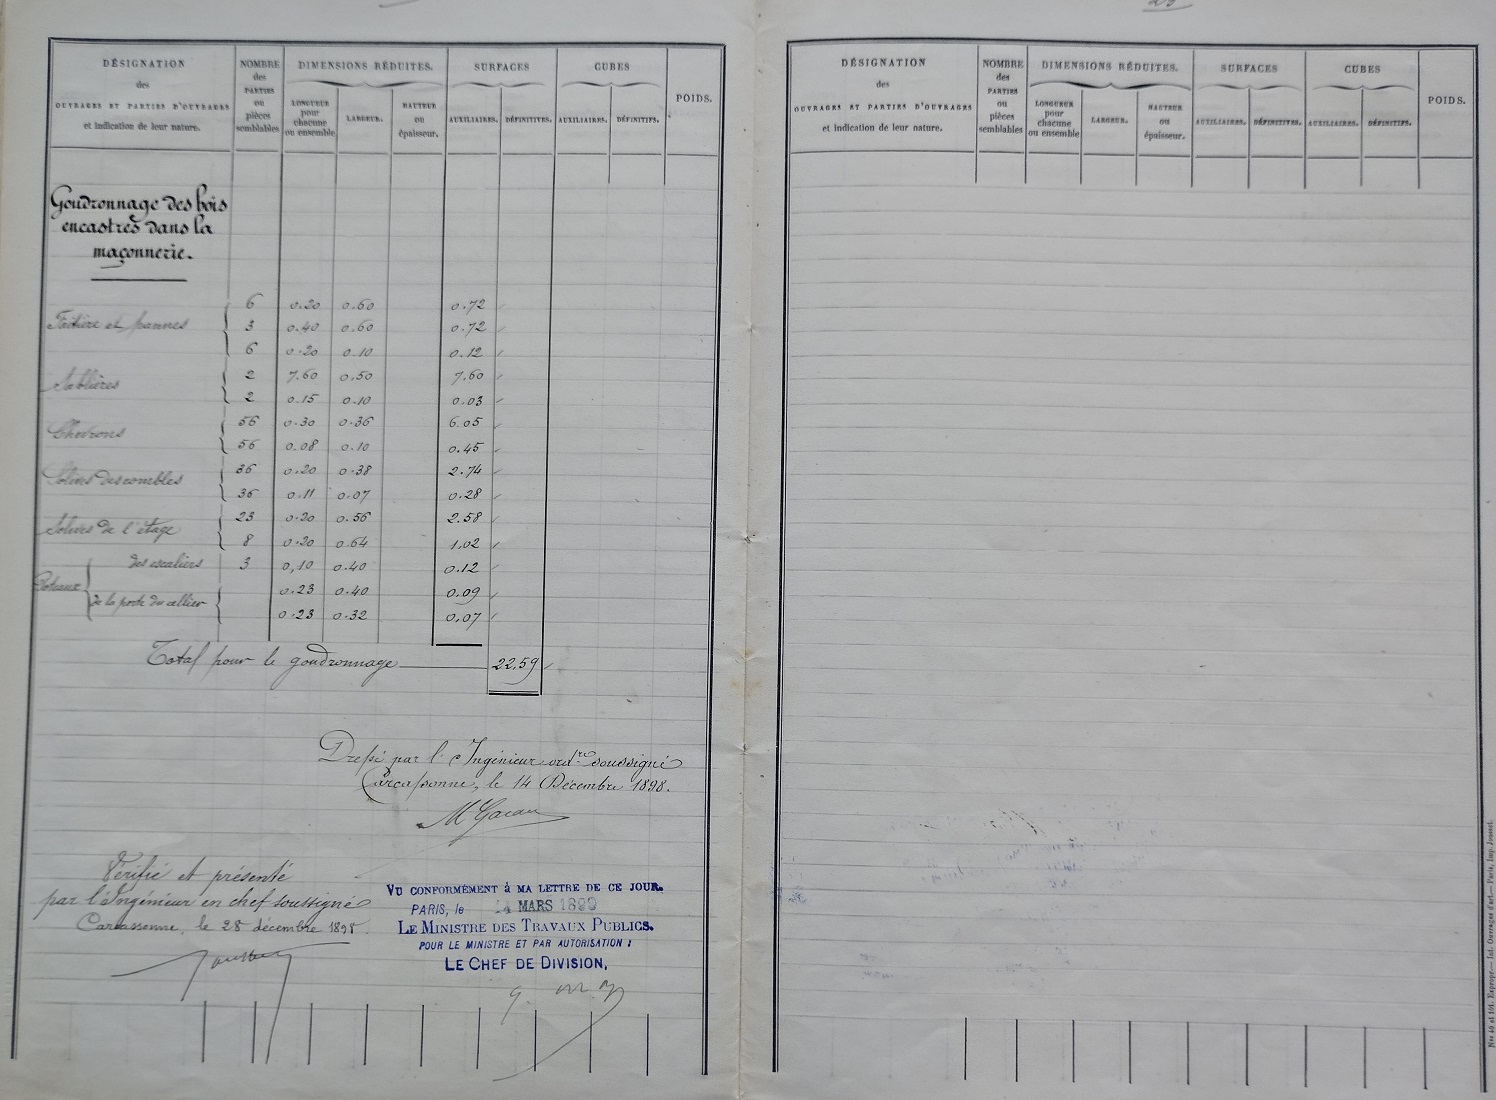 DÉSIGNATION
des
OUVRAGES ET PARTIES D'OUVRAGES
et indication de leur nature.
NOMBRE
des
PARTIES
ou
pièces
semblables
DIMENSIONS RÉDUITES.
LONGUEUR
pour
chacune
ou ensemble
LARGEUR.
HAUTEUR
ou
épaisseur.
SURFACES
AUXILIAIRES.
DÉFINITIVES.
CUBES
AUXILIAIRES.
DÉFINITIFS.
POIDS.
Goudronnage des bois
encastrés dans la
maçonnerie.
6 0.20 0.60 0.72
Faîtière et pannes 3 0.40 0.60 0.72
6 0.20 0.10 0.12
Sablières 2 7.60 0.50 7.60
2 0.15 0.10 0.03
Chevrons 56 0.30 0.36 6.05
56 0.08 0.10 0.45
Solives des combles 36 0.20 0.38 2.74
36 0.11 0.07 0.28
Solives de l'étage 23 0.20 0.56 2.58
8 0.20 0.64 1.02
Poteaux des escaliers 3 0,10 0.40 0.12
0.23 0.40 0.09
de la porte du cellier 0.23 0.32 0.07
Total pour le goudronnage 22,59
Dressé par l'Ingénieur ord.re soussigné
Carcassonne, le 14 Décembre 1898.
Vérifié et présenté
par l'Ingénieur en chef soussigné
Carcassonne, le 28 décembre 1898.
VU CONFORMÉMENT à MA LETTRE DE CE JOUR.
PARIS, le 14 MARS 1899
LE MINISTRE DES TRAVAUX PUBLICS.
POUR LE MINISTRE ET PAR AUTORISATION :
LE CHEF DE DIVISION,
DÉSIGNATION
des
OUVRAGES ET PARTIES D'OUVRAGES
et indication de leur nature.
NOMBRE
des
PARTIES
ou
pièces
semblables
DIMENSIONS RÉDUITES.
LONGUEUR
pour
chacune
ou ensemble
LARGEUR.
HAUTEUR
ou
épaisseur.
SURFACES
AUXILIAIRES.
DÉFINITIVES.
CUBES
AUXILIAIRES.
DÉFINITIFS.
POIDS.